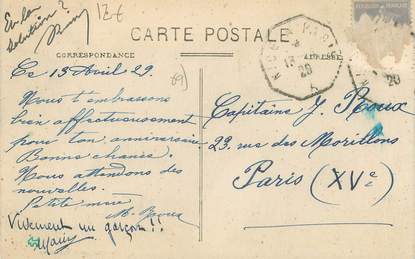 En la
solution?
12€
CARTE POSTALE
CORRESPONDANCE
ADRESSE
Ce 13 Avril 29
(69)
Nous t'embrassons
bien affectueusement
pour ton anniversaire
Bonne chance.
Nous attendons des
nouvelles.
Petite mère
M. Roux
Vivement un garçon!!
Capitaine J. Roux
23, rue des Morillons
Paris (XVe)
PARIS
13